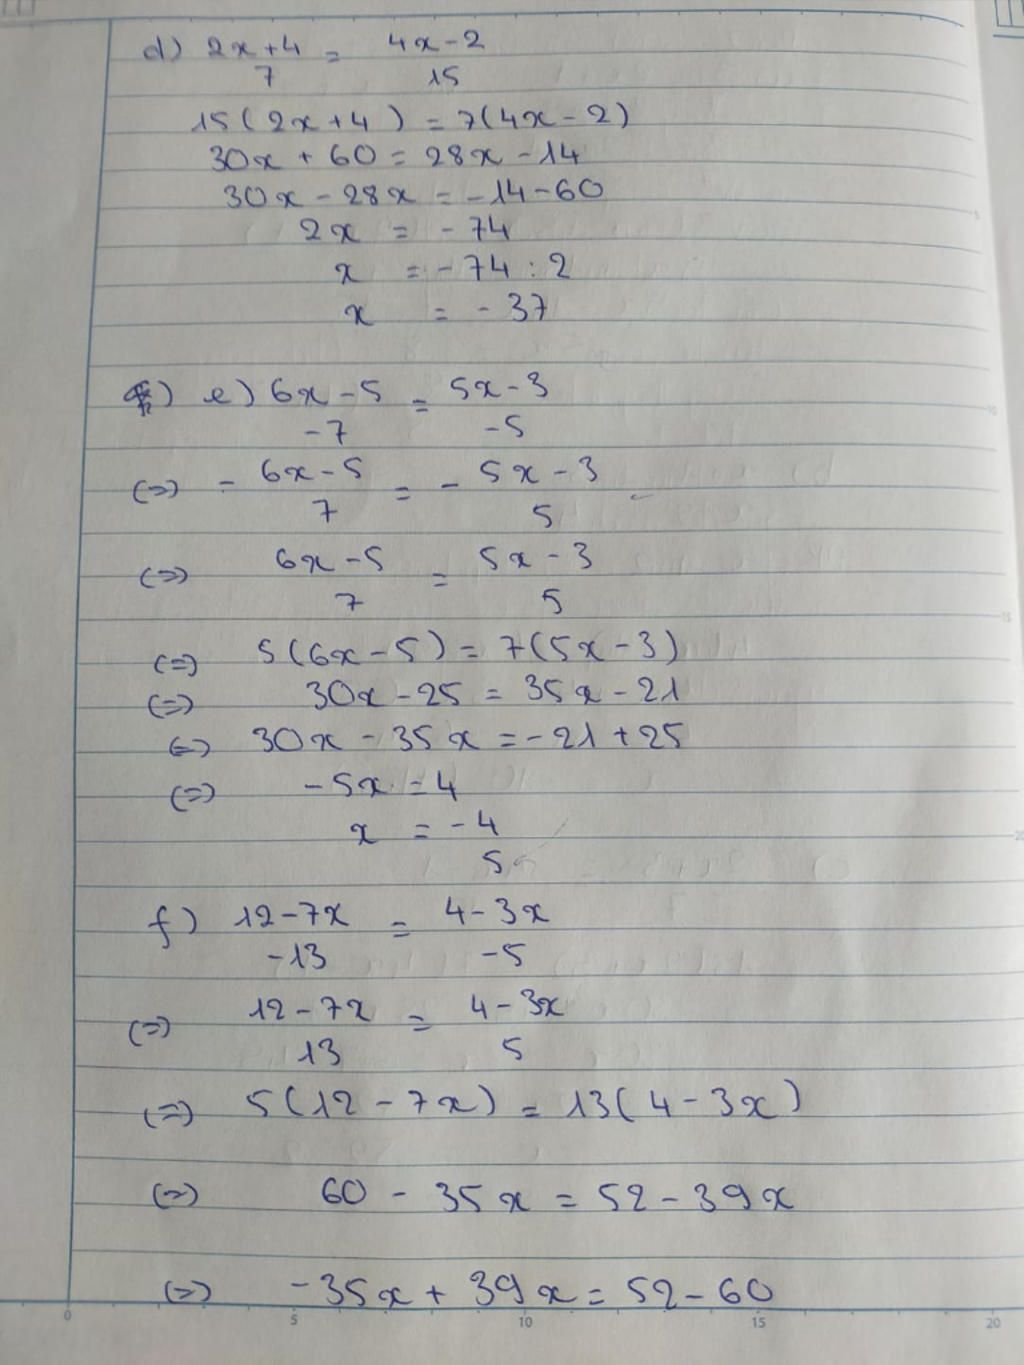 d) 2x+4 = 4x-2
7 15
15(2x+4) = 7(4x-2)
30x + 60 = 28x - 14
30x - 28x = -14-60
2x = -74
x = -74 : 2
x = -37
e) 6x-5 = 5x-3
-7 -5
(=>) - 6x-5 = - 5x-3
7 5
(=>) 6x-5 = 5x-3
7 5
(=>) 5(6x-5) = 7(5x-3)
(=>) 30x-25 = 35x-21
(=>) 30x - 35x = -21+25
(=>) -5x = 4
x = -4
5
f) 12-7x = 4-3x
-13 -5
(=>) 12-7x = 4-3x
13 5
(=>) 5(12-7x) = 13(4-3x)
(=>) 60 - 35x = 52-39x
(=>) -35x + 39x = 52-60
0 5 10 15 20